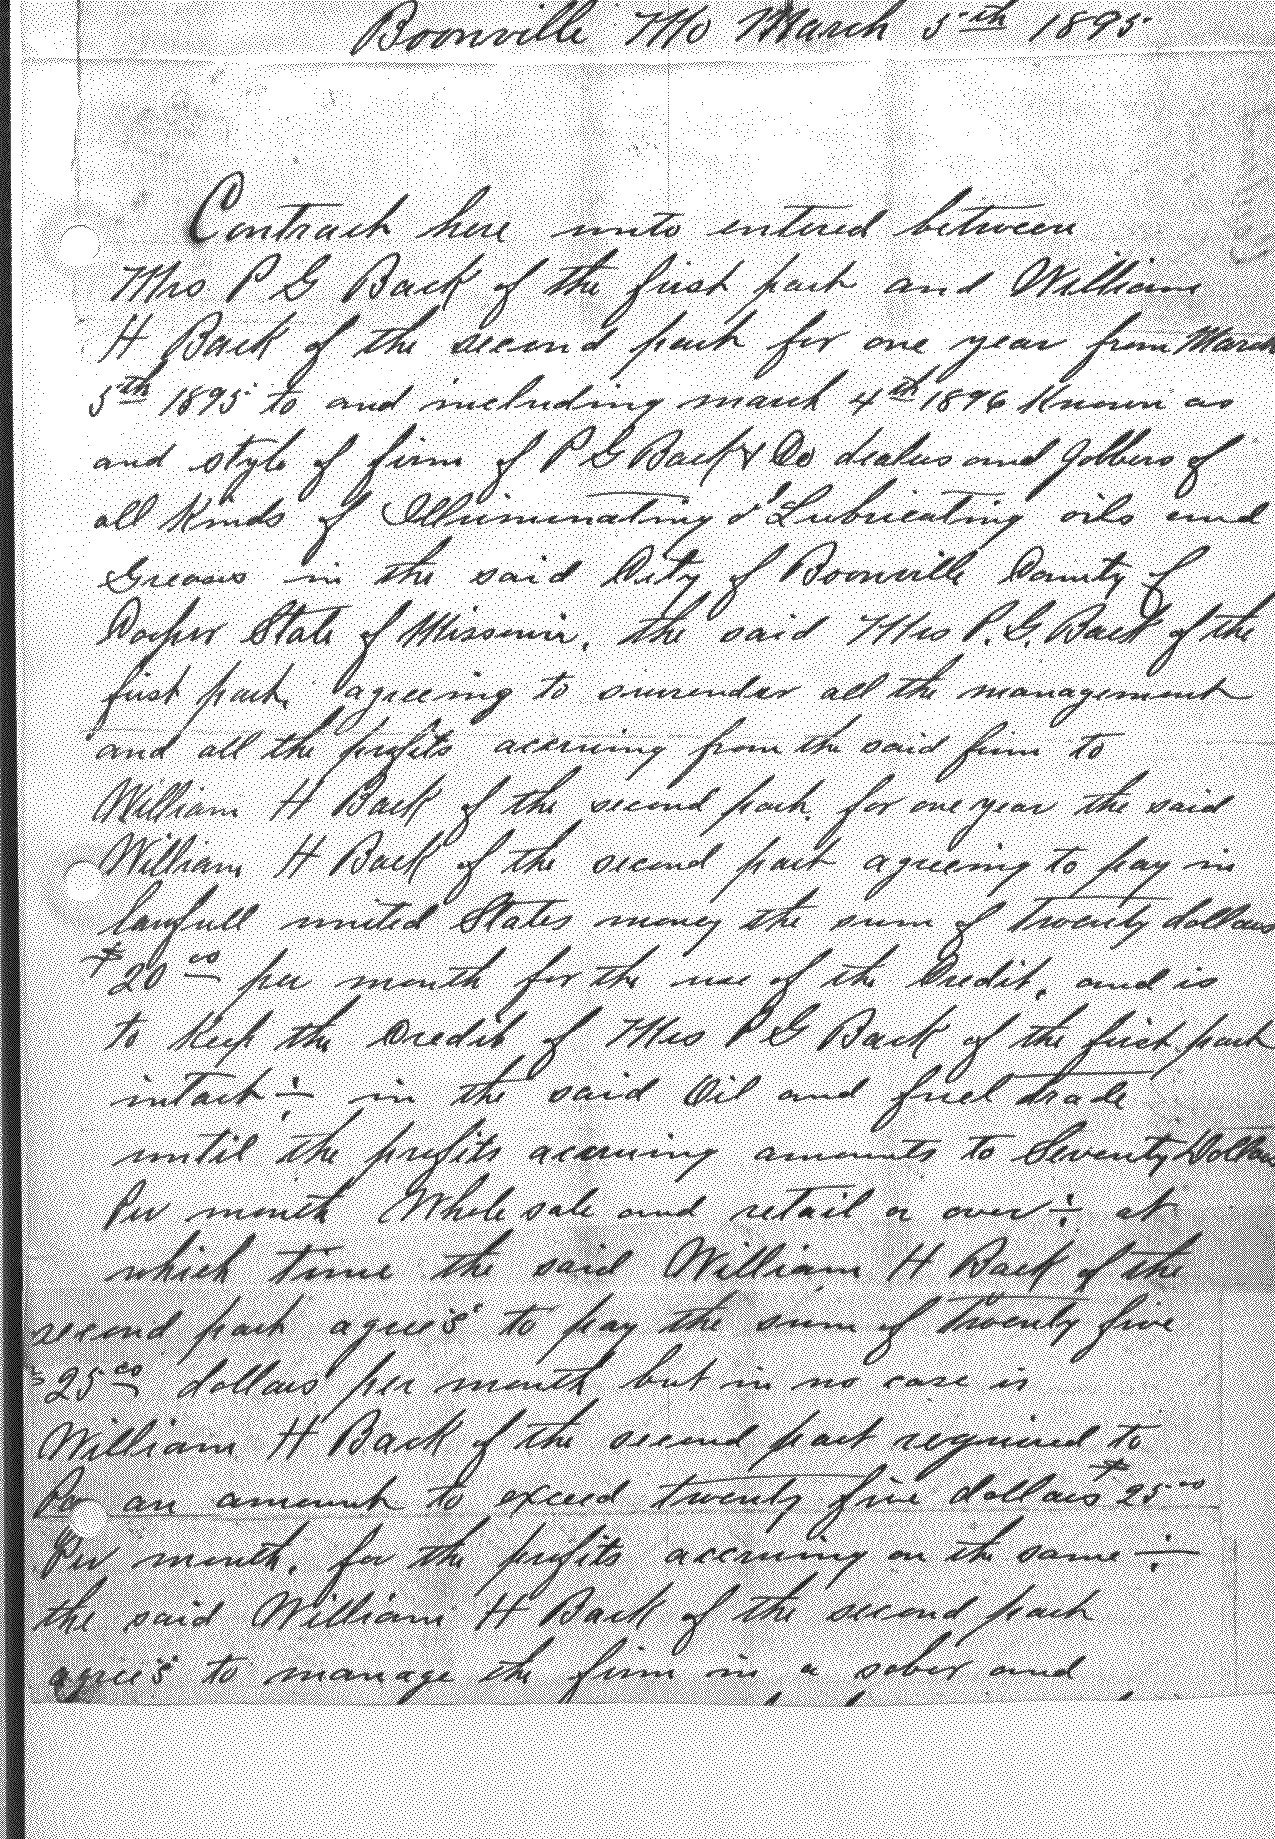 Boonville Mo March 5th 1895.
Contract here unto entered between
Mrs P G Back of the first part and William
H Back of the second part for one year from March
5th 1895. to and including march 4th 1896 Known as
and style of firm of P G Back & Co dealers and Jobbers of
all Kinds of Illuminating & Lubricating oils and
Greases in the said City of Boonville County of
Cooper State of Missouri, the said Mrs P. G. Back of the
first part, agreeing to surrender all the management
and all the profits accruing from the said firm to
William H Back of the second part, for one year the said
William H Back of the second part agreeing to pay in
lawfull united States money the sum of twenty dollars
$20 00 per month for the use of the Credit, and is
to Keep the Credit of Mrs P G Back of the first part
intact ÷ in the said Oil and fuel trade
until the profits accruing amounts to Seventy Dollars
Per month Whole sale and retail or over ÷ at
which time the said William H Back of the
second part agree's to pay the sum of twenty five
25 00 dollars per month but in no case is
William H Back of the second part required to
Pay an amount to exceed twenty five dollars $25 00
Per month, for the profits accruing on the same ÷
the said William H Back of the second part
agree's to manage the firm in a sober and